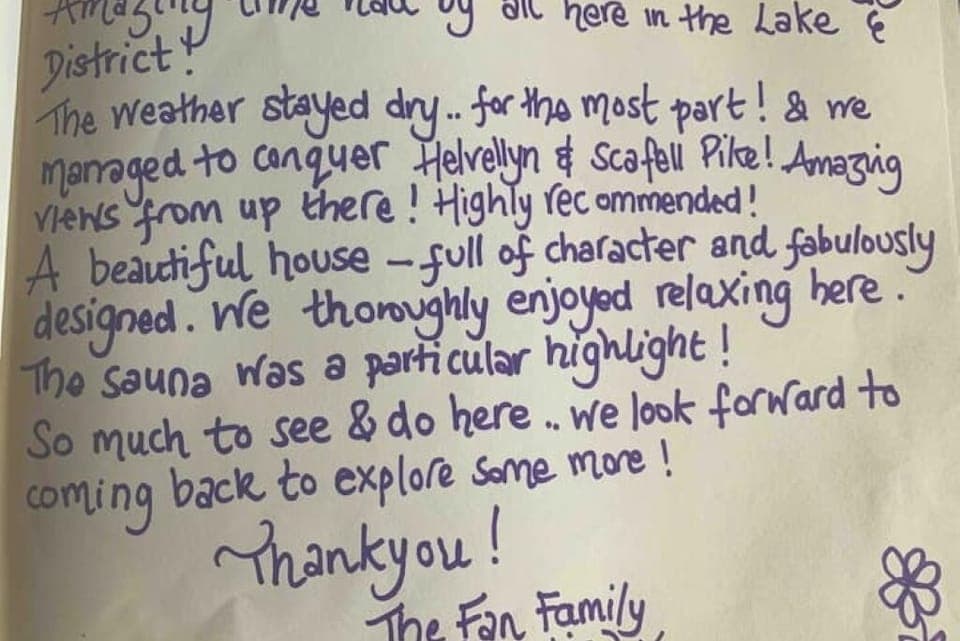 Amazing time had by all here in the Lake
District!
The weather stayed dry.. for the most part! & we
managed to conquer Helvellyn & Scafell Pike! Amazing
views from up there! Highly recommended!
A beautiful house – full of character and fabulously
designed. We thoroughly enjoyed relaxing here.
The sauna was a particular highlight!
So much to see & do here .. we look forward to
coming back to explore some more!
Thankyou!
The Fan Family